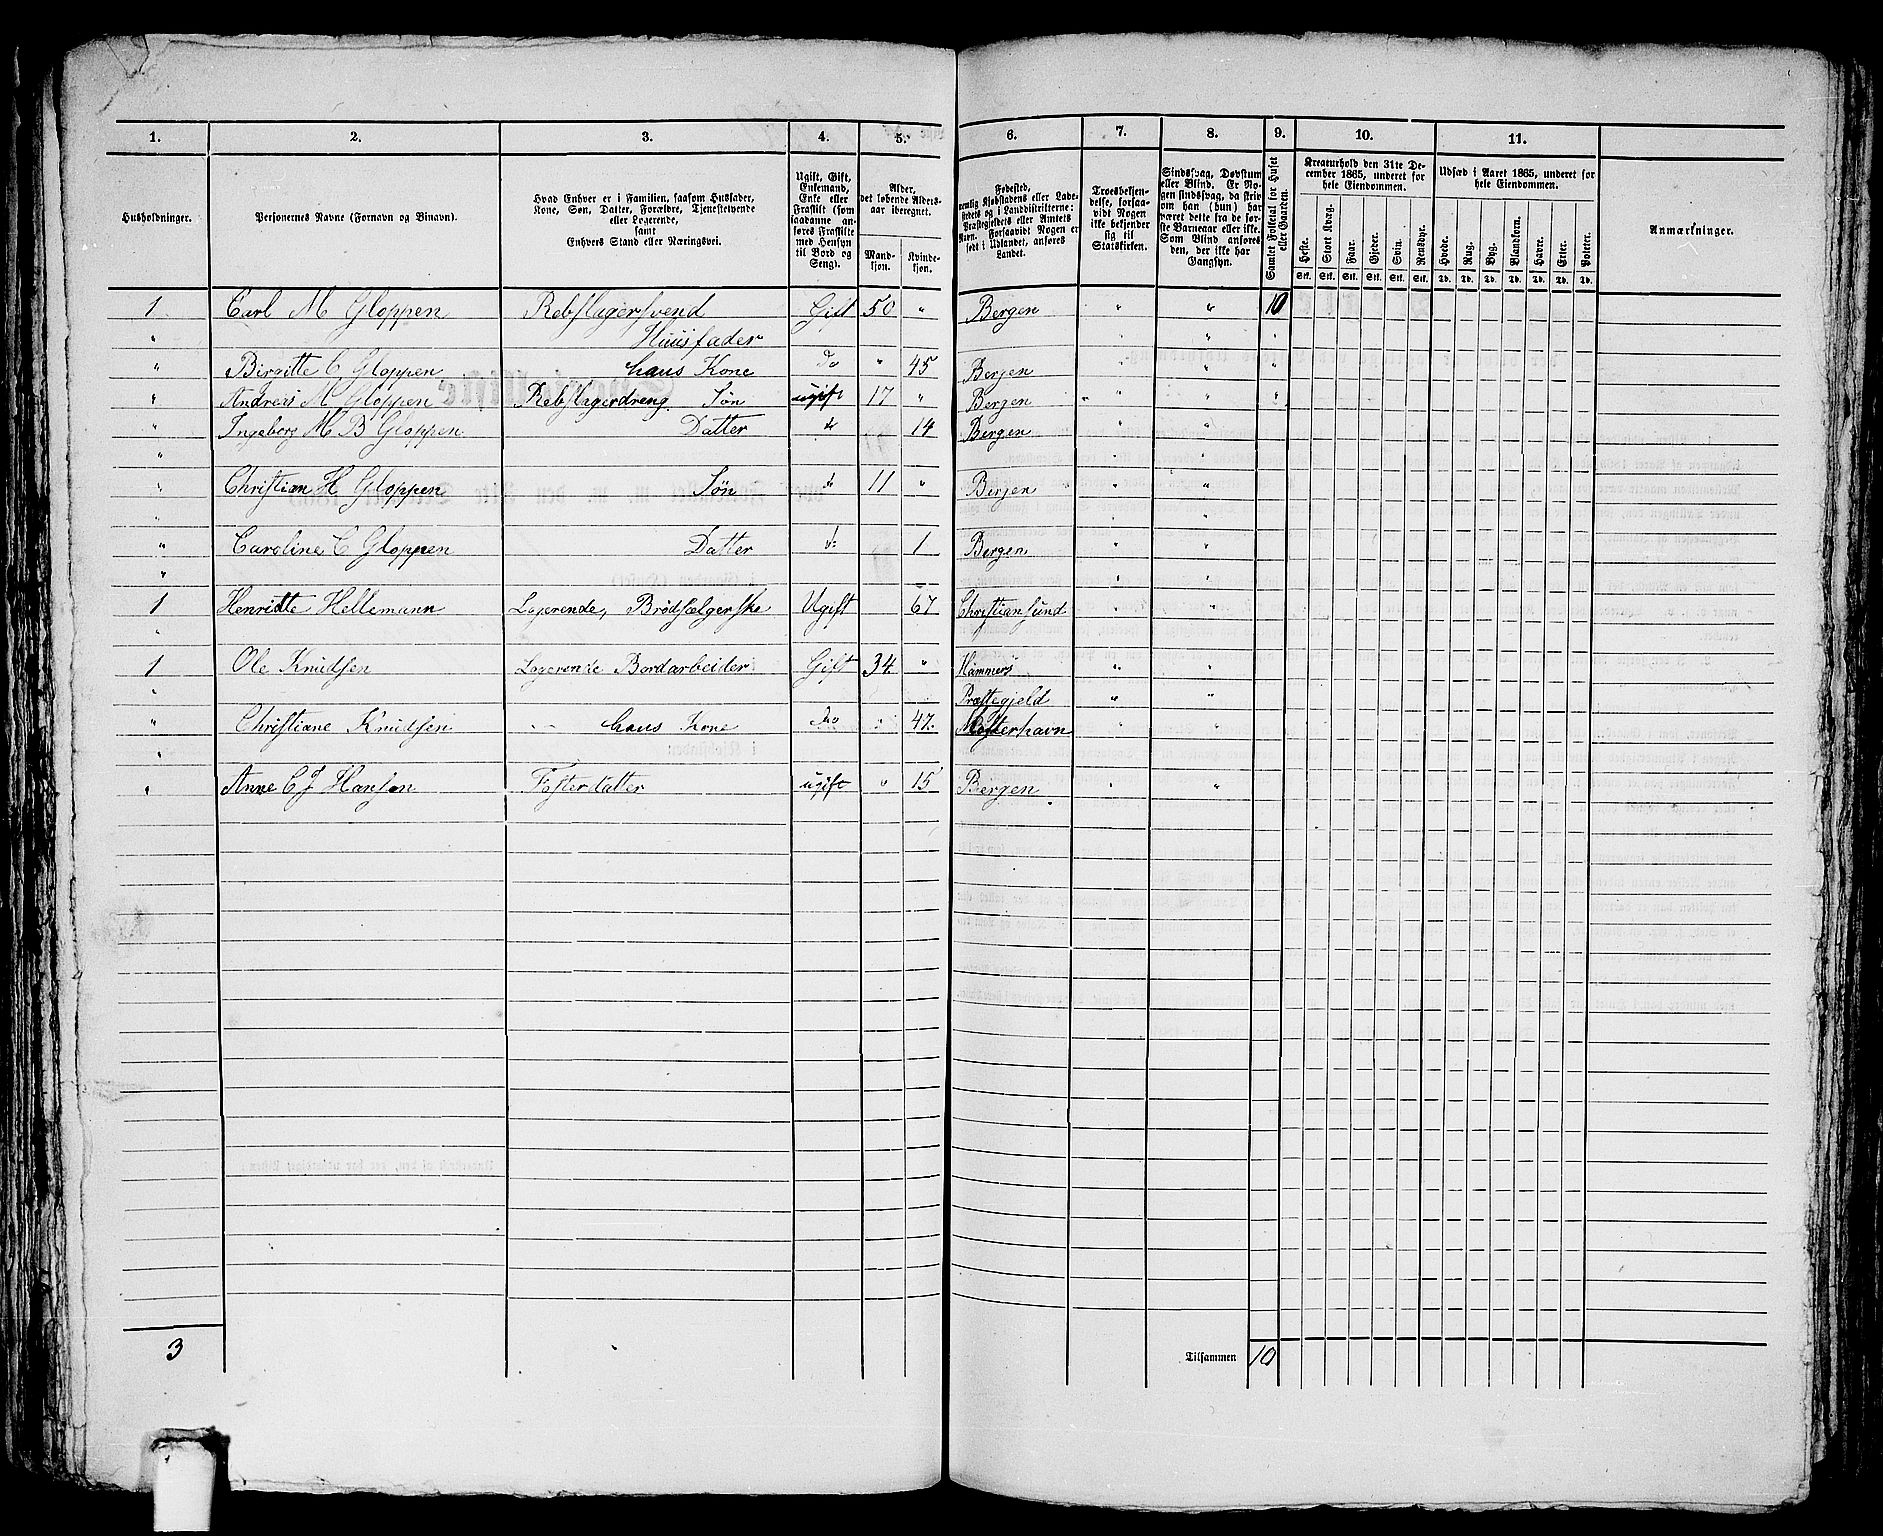 1. 2. 3. 4. 5. 6. 7. 8. 9. 10. 11.
Husholdninger.
Personernes Navne (Fornavn og Binavn).
Hvad Enhver er i Familien, saasom Husfader,
Kone, Søn, Datter, Forældre, Tjenestetyende
eller Logerende,
samt
Enhvers Stand eller Næringsvei.
Ugift, Gift,
Enkemand,
Enke eller
Fraskilt (som
saadanne an-
føres Fraskilte
med Hensyn
til Bord og
Seng).
Alder,
det løbende Alders-
aar iberegnet.
Mand-
kjøn.
Kvinde-
kjøn.
Fødested,
nemlig Kjøbstadens eller Lade-
stedets og i Landdistrikterne:
Præstegjeldets eller Amtets
Navn. Forsaavidt Nogen er
født i Udlandet, anføres
Landet.
Troesbekjen-
delse, forsaa-
vidt Nogen
ikke bekjender
sig til
Statskirken.
Sindssvag, Døvstum
eller Blind. Er No-
gen sindssvag, da skriv
om han (hun) har
været dette fra de før-
ste Barneaar eller ikke.
Som Blind anføres
den, der ikke har
Gangsyn.
Samlet Folketal for Huset
eller Gaarden.
Kreaturhold den 31te De-
cember 1865, underet for
hele Eiendommen.
Heste. Stort Kvæg. Faar. Gjeder. Svin. Rensdyr.
Stk. Stk. Stk. Stk. Stk. Stk.
Udsæd i Aaret 1865, underet for
hele Eiendommen.
Hvede. Rug. Byg. Blandkorn. Havre. Erter. Poteter.
Td. Td. Td. Td. Td. Td. Td.
Anmærkninger.
1 Carl M Gloppen Rebslagersvend Gift 50 " Bergen " " 10
" Huusfader " "
" Birgitte C Gloppen hans Kone do " 45 Bergen " " "
" Andreas M Gloppen Rebslagerdreng Søn ugift 17 " Bergen " " "
" Ingeborg M B Gloppen Datter do 14 Bergen " "
"
" Christian H Gloppen Søn do 11 " Bergen " "
"
" Caroline C Gloppen Datter do 1 Bergen " "
"
1 Henriette Hellemann Logerende, Brødsælgerske Ugift 67 Christiansund " "
"
1 Ole Knudsen Logerende Bordarbeider Gift 34 " Hammers " "
" Præstegjeld " "
" Christiane Knudsen hans Kone do " 47. Mosterhavn " "
"
" Anne C J Hansen Fosterdatter ugift " 15 Bergen " "
3 Tilsammen 10